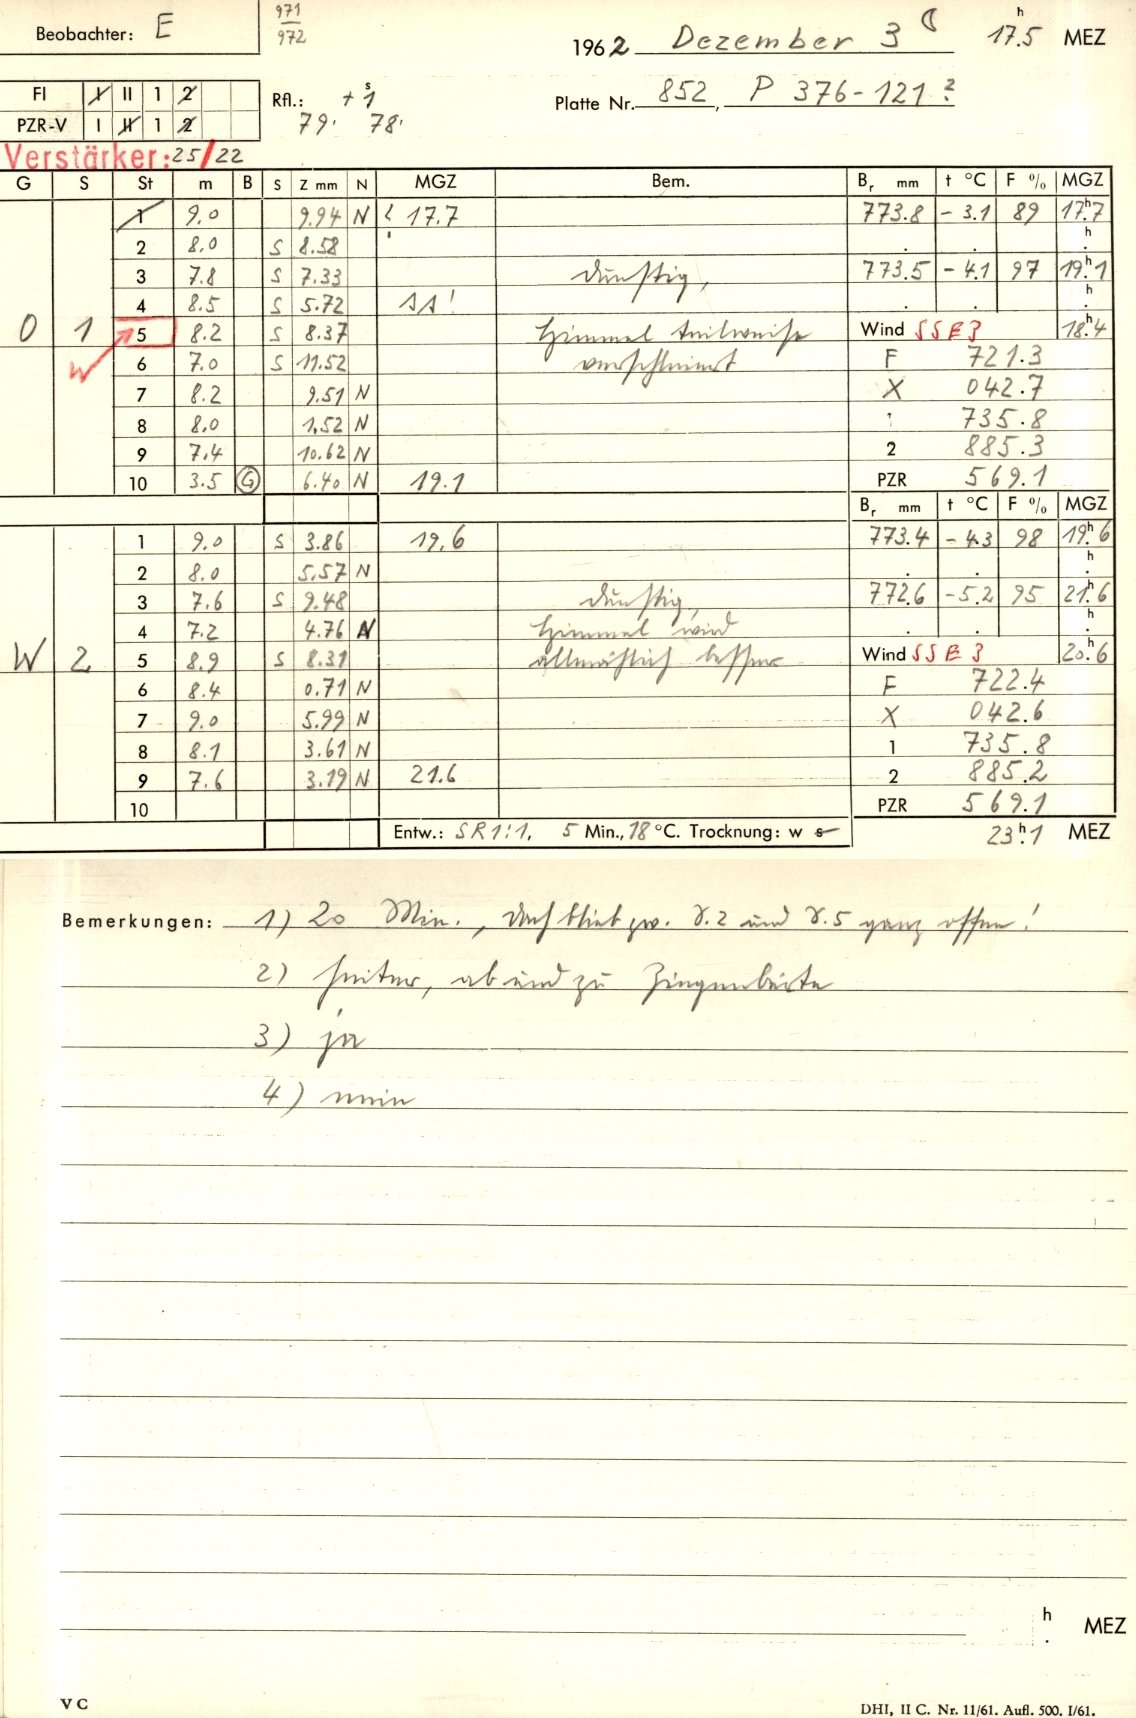 Beobachter: E
971
972
1962 Dezember 3 ☾ 17.5 h MEZ
FI I II 1 2
PZR-V I II 1 2
Rfl.: + 1 s
79. 78.
Platte Nr. 852, P 376-121 ?
Verstärker: 25/22
G S St m B S Z mm N MGZ Bem. Br mm t °C F % MGZ
1 9.0 9.94 N 17.7 773.8 - 3.1 89 17.7 h
2 8.0 S 8.58 . . . h
3 7.8 S 7.33 dunstig, 773.5 - 4.1 97 19.1 h
4 8.5 S 5.72 1A! . . . h
O 1 5 8.2 S 8.37 Himmel teilweise Wind SSE 3 18.4 h
W 6 7.0 S 11.52 verschleiert F 721.3
7 8.2 9.51 N X 042.7
8 8.0 1.52 N 1 735.8
9 7.4 10.62 N 2 885.3
10 3.5 G 6.40 N 19.1 PZR 569.1
Br mm t °C F % MGZ
1 9.0 S 3.86 19.6 773.4 - 4.3 98 19.6 h
2 8.0 5.57 N . . . h
3 7.6 S 9.48 dunstig, 772.6 - 5.2 95 21.6 h
4 7.2 4.76 N Himmel wird . . . h
W 2 5 8.9 S 8.31 allmählich besser Wind SSE 3 20.6 h
6 8.4 0.71 N F 722.4
7 9.0 5.99 N X 042.6
8 8.1 3.61 N 1 735.8
9 7.6 3.19 N 21.6 2 885.2
10 PZR 569.1
Entw.: SR 1:1, 5 Min., 18 °C. Trocknung: w s 23.1 h MEZ
Bemerkungen: 1) 20 Min., Dach blieb zw. S.2 und S.5 ganz offen!
2) heiter, ab und zu
3) ja
4) nein
h . MEZ
V C
DHI, II C. Nr. 11/61. Aufl. 500. I/61.